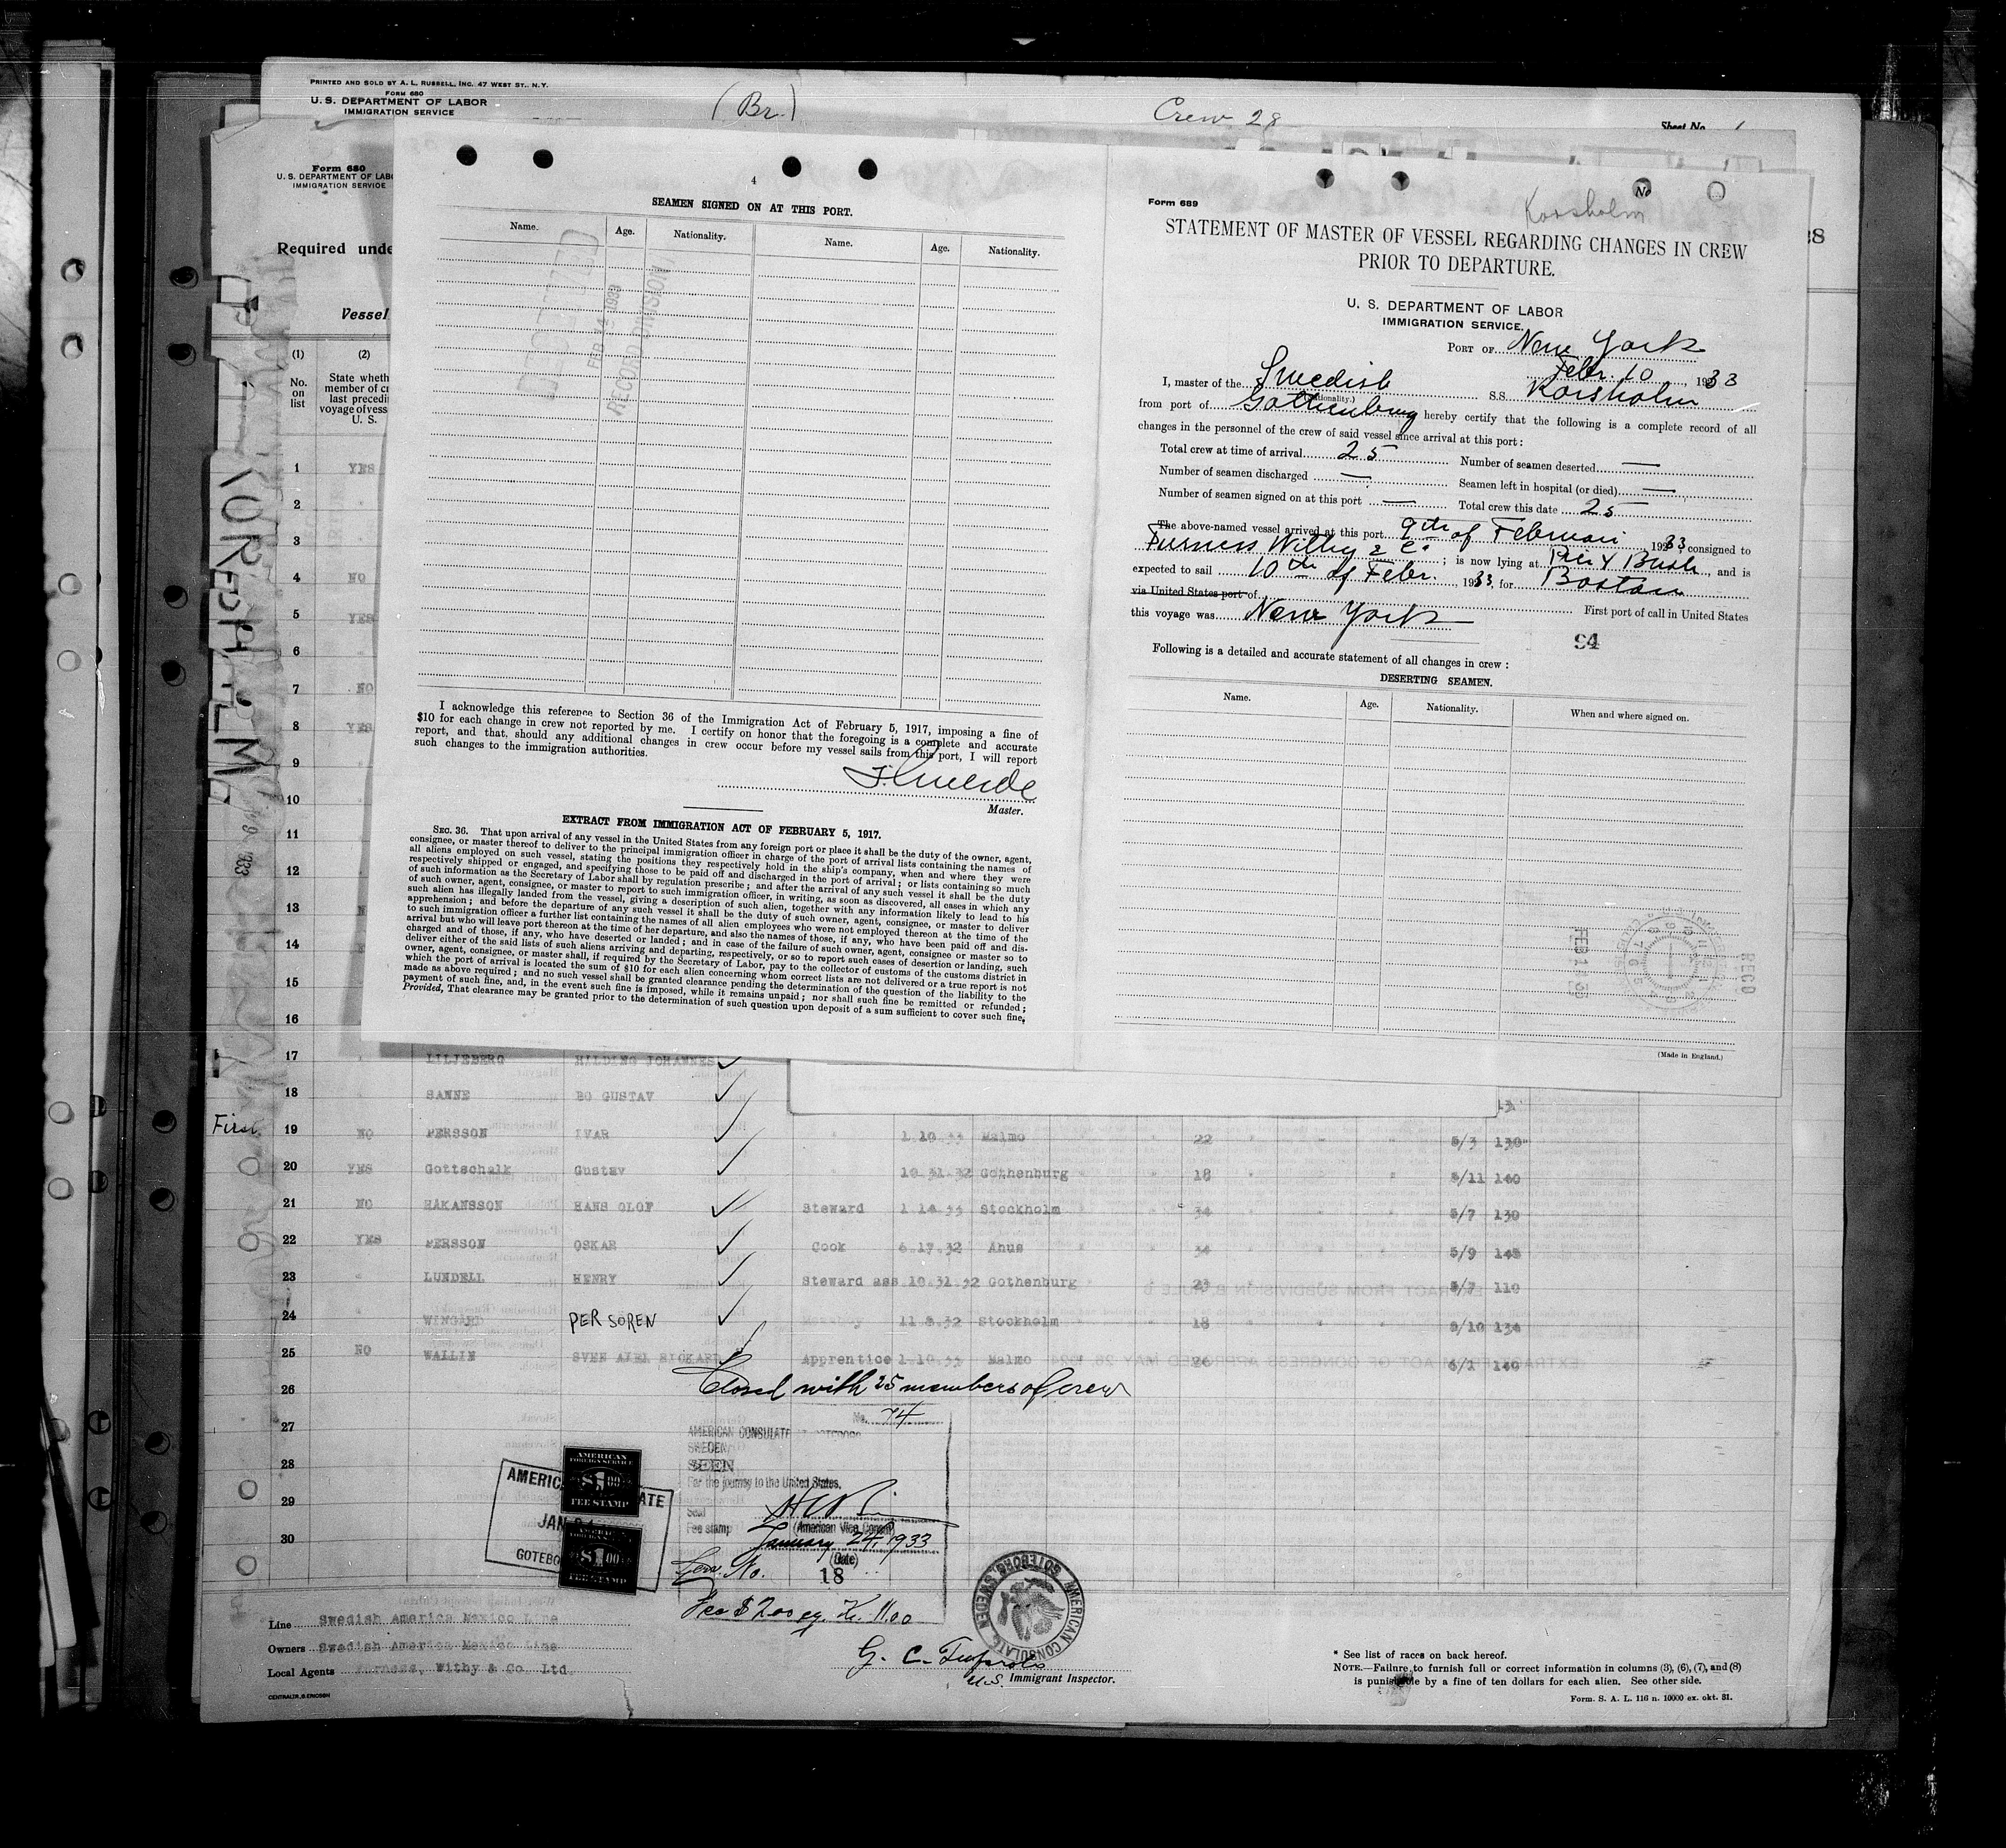 PRINTED AND SOLD BY A. L. RUSSELL, INC. 47 WEST ST., N.Y.
FORM 680
U. S. DEPARTMENT OF LABOR
IMMIGRATION SERVICE
(Br.)
Crew 28
Sheet No. 1
Form 680
U. S. DEPARTMENT OF LABO
IMMIGRATION SERVICE
Required unde
Vessel
(1) (2)
No. on list
State wheth
member of cr
last precedin
voyage of vess
U. S.
1 YES
2
3
4 NO
5 YES
6
7 NO
8 YES
9
10
11
12
13
14
15
16
4
SEAMEN SIGNED ON AT THIS PORT.
Name. Age. Nationality. Name. Age. Nationality.
FEB 14 1933
RECORD DIVISION
I acknowledge this reference to Section 36 of the Immigration Act of February 5, 1917, imposing a fine of
$10 for each change in crew not reported by me. I certify on honor that the foregoing is a complete and accurate
report, and that, should any additional changes in crew occur before my vessel sails from this port, I will report
such changes to the immigration authorities.
Master.
EXTRACT FROM IMMIGRATION ACT OF FEBRUARY 5, 1917.
SEC. 36. That upon arrival of any vessel in the United States from any foreign port or place it shall be the duty of the owner, agent,
consignee, or master thereof to deliver to the principal immigration officer in charge of the port of arrival lists containing the names of
all aliens employed on such vessel, stating the positions they respectively hold in the ship's company, when and where they were
respectively shipped or engaged, and specifying those to be paid off and discharged in the port of arrival; or lists containing so much
of such information as the Secretary of Labor shall by regulation prescribe; and after the arrival of any such vessel it shall be the duty
of such owner, agent, consignee, or master to report to such immigration officer, in writing, as soon as discovered, all cases in which any
such alien has illegally landed from the vessel, giving a description of such alien, together with any information likely to lead to his
apprehension; and before the departure of any such vessel it shall be the duty of such owner, agent, consignee, or master to deliver
to such immigration officer a further list containing the names of all alien employees who were not employed thereon at the time of the
arrival but who will leave port thereon at the time of her departure, and also the names of those, if any, who have been paid off and dis-
charged and of those, if any, who have deserted or landed; and in case of the failure of such owner, agent, consignee or master so to
deliver either of the said lists of such aliens arriving and departing, respectively, or so to report such cases of desertion or landing, such
owner, agent, consignee, or master shall, if required by the Secretary of Labor, pay to the collector of customs of the customs district in
which the port of arrival is located the sum of $10 for each alien concerning whom correct lists are not delivered or a true report is not
made as above required; and no such vessel shall be granted clearance pending the determination of the question of the liability to the
payment of such fine, and, in the event such fine is imposed, while it remains unpaid; nor shall such fine be remitted or refunded;
Provided, That clearance may be granted prior to the determination of such question upon deposit of a sum sufficient to cover such fine.
Form 689
No
Korsholm
STATEMENT OF MASTER OF VESSEL REGARDING CHANGES IN CREW
PRIOR TO DEPARTURE.
U. S. DEPARTMENT OF LABOR
IMMIGRATION SERVICE.
PORT OF New York
Febr. 10, 1933
I, master of the Swedish S.S. Korsholm
(Nationality.)
from port of Gothenburg hereby certify that the following is a complete record of all
changes in the personnel of the crew of said vessel since arrival at this port:
Total crew at time of arrival 25 Number of seamen deserted —
Number of seamen discharged — Seamen left in hospital (or died) —
Number of seamen signed on at this port — Total crew this date 25
The above-named vessel arrived at this port 9th of Februari, 1933 consigned to
Furness Withy & Co; is now lying at Pier 4 Bush, and is
expected to sail 10th of Febr., 1933, for Boston
via United States port of First port of call in United States
this voyage was New York
94
Following is a detailed and accurate statement of all changes in crew:
DESERTING SEAMEN.
Name. Age. Nationality. When and where signed on.
RECD
(Made in England.)
17 LILJEBERG HILDING JOHANNES
18 SANNE BO GUSTAV
First 19 NO PERSSON IVAR 1.10.33 Malmo 22 5/3 130
20 YES Gottschalk Gustav 10.31.32 Gothenburg 18 5/11 140
21 NO HÅKANSSON HANS OLOF Steward 1.14.33 Stockholm 34 5/7 130
22 YES PERSSON OSKAR Cook 6.17.32 Ahus 34 5/9 145
23 LUNDELL HENRY Steward ass 10.31.32 Gothenburg 23 5/7 110
24 WINGÅRD PER SÖREN 11.8.32 Stockholm 18 5/10 134
25 NO WALLIN SVEN AXEL RICKARD Apprentice 1.10.33 Malmo 26 6/2 140
26 Closed with 25 members of crew
27
28
29
30
No. 74
AMERICAN CONSULATE
SWEDEN
SEEN
For the journey to the United States.
Seal
(American Vice Consul)
Fee stamp
January 24, 1933
(Date)
Serv. No. 18
Fee $2.00 eq. Kr. 11.00
AMERICAN
FOREIGN SERVICE
$1.00
FEE STAMP
AMERICAN
FOREIGN SERVICE
$1.00
FEE STAMP
AMERIC ATE
JAN
GOTEBO
AMERICAN CONSULATE GOTEBORG, SWEDEN
Line Swedish America Mexico Line
Owners Swedish America Mexico Line
Local Agents Furness, Withy & Co. Ltd.
CENTRALTR.G.ERICSON
G. C.
U.S. Immigrant Inspector.
* See list of races on back hereof.
NOTE.—Failure to furnish full or correct information in columns (3), (6), (7), and (8)
is punishable by a fine of ten dollars for each alien. See other side.
Form. S. A. L. 116 n. 10000 ex. okt. 31.